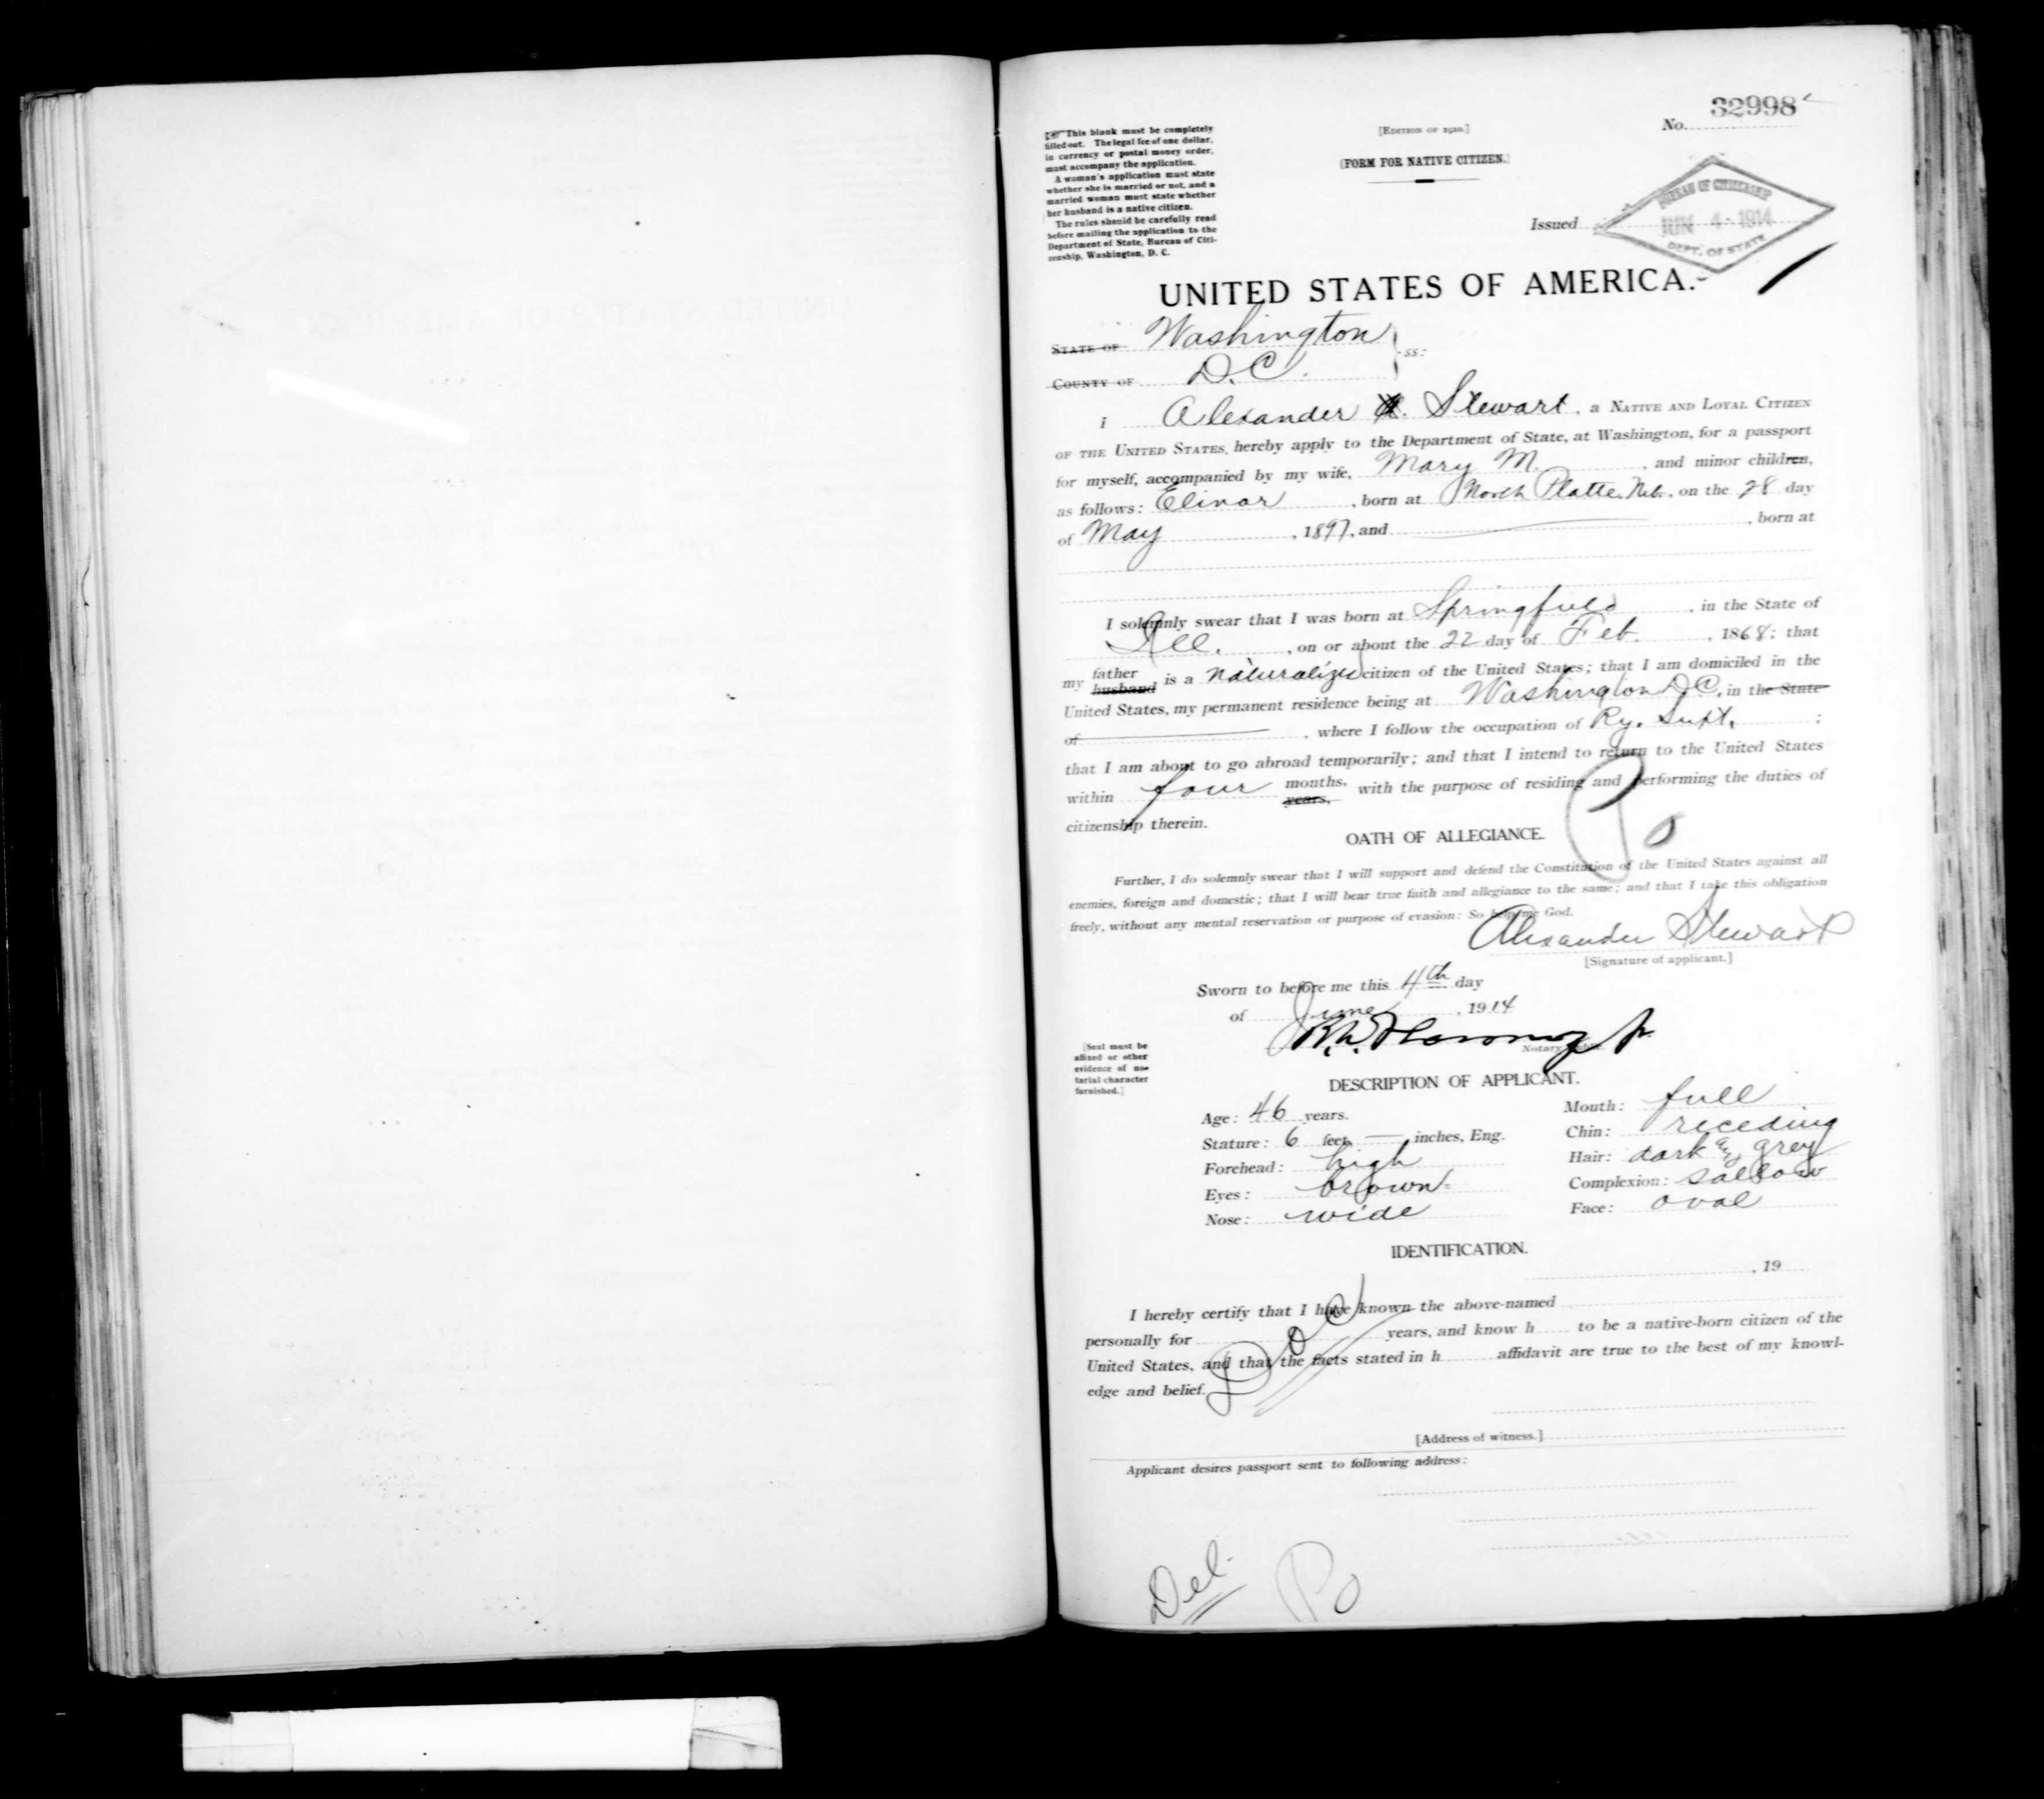 32998
No.
☞ This blank must be completely
filled out. The legal fee of one dollar,
in currency or postal money order,
must accompany the application.
A woman's application must state
whether she is married or not, and a
married woman must state whether
her husband is a native citizen.
The rules should be carefully read
before mailing the application to the
Department of State, Bureau of Citi-
zenship, Washington, D. C.
[EDITION OF 1910.]
[FORM FOR NATIVE CITIZEN.]
Issued
BUREAU OF CITIZENSHIP
JUN 4 - 1914
DEPT. OF STATE
UNITED STATES OF AMERICA.
STATE OF Washington
COUNTY OF D.C. ss:
I Alexander Stewart, a NATIVE AND LOYAL CITIZEN
OF THE UNITED STATES, hereby apply to the Department of State, at Washington, for a passport
for myself, accompanied by my wife, Mary M., and minor children,
as follows: Elinor, born at North Platte, Neb., on the 28 day
of May, 1897, and , born at
I solemnly swear that I was born at Springfield, in the State of
Ill., on or about the 22 day of Feb., 1868; that
my father husband is a naturalized citizen of the United States; that I am domiciled in the
United States, my permanent residence being at Washington D.C., in the State
of , where I follow the occupation of Ry. Supt. ;
that I am about to go abroad temporarily; and that I intend to return to the United States
within four months, years, with the purpose of residing and performing the duties of
citizenship therein.
OATH OF ALLEGIANCE.
Further, I do solemnly swear that I will support and defend the Constitution of the United States against all
enemies, foreign and domestic; that I will bear true faith and allegiance to the same; and that I take this obligation
freely, without any mental reservation or purpose of evasion: So help me God.
Alexander Stewart
[Signature of applicant.]
Sworn to before me this 4th day
of June, 1914
Notary Public.
[Seal must be
affixed or other
evidence of no-
tarial character
furnished.]
DESCRIPTION OF APPLICANT.
Age: 46 years. Mouth: full
Stature: 6 feet, — inches, Eng. Chin: receding
Forehead: high Hair: dark grey
Eyes: brown Complexion: sallow
Nose: wide Face: oval
IDENTIFICATION.
, 19
I hereby certify that I have known the above-named
personally for years, and know h to be a native-born citizen of the
United States, and that the facts stated in h affidavit are true to the best of my knowl-
edge and belief.
[Address of witness.]
Applicant desires passport sent to following address:
Del.